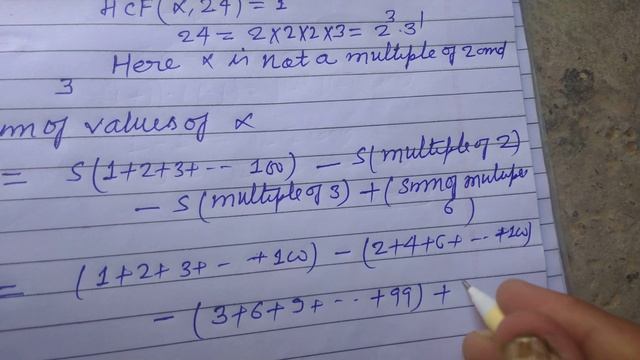 HCF(α, 24) = 1
24 = 2×2×2×3 = 2³·3¹
Here α is not a multiple of 2 and
3
m of values of α
= S(1+2+3+ -- 100) – S(multiple of 2)
– S(multiple of 3) + (Sum of multiple
6)
= (1+2+3+ - +100) – (2+4+6+ -- +100)
– (3+6+9+ -- +99) +